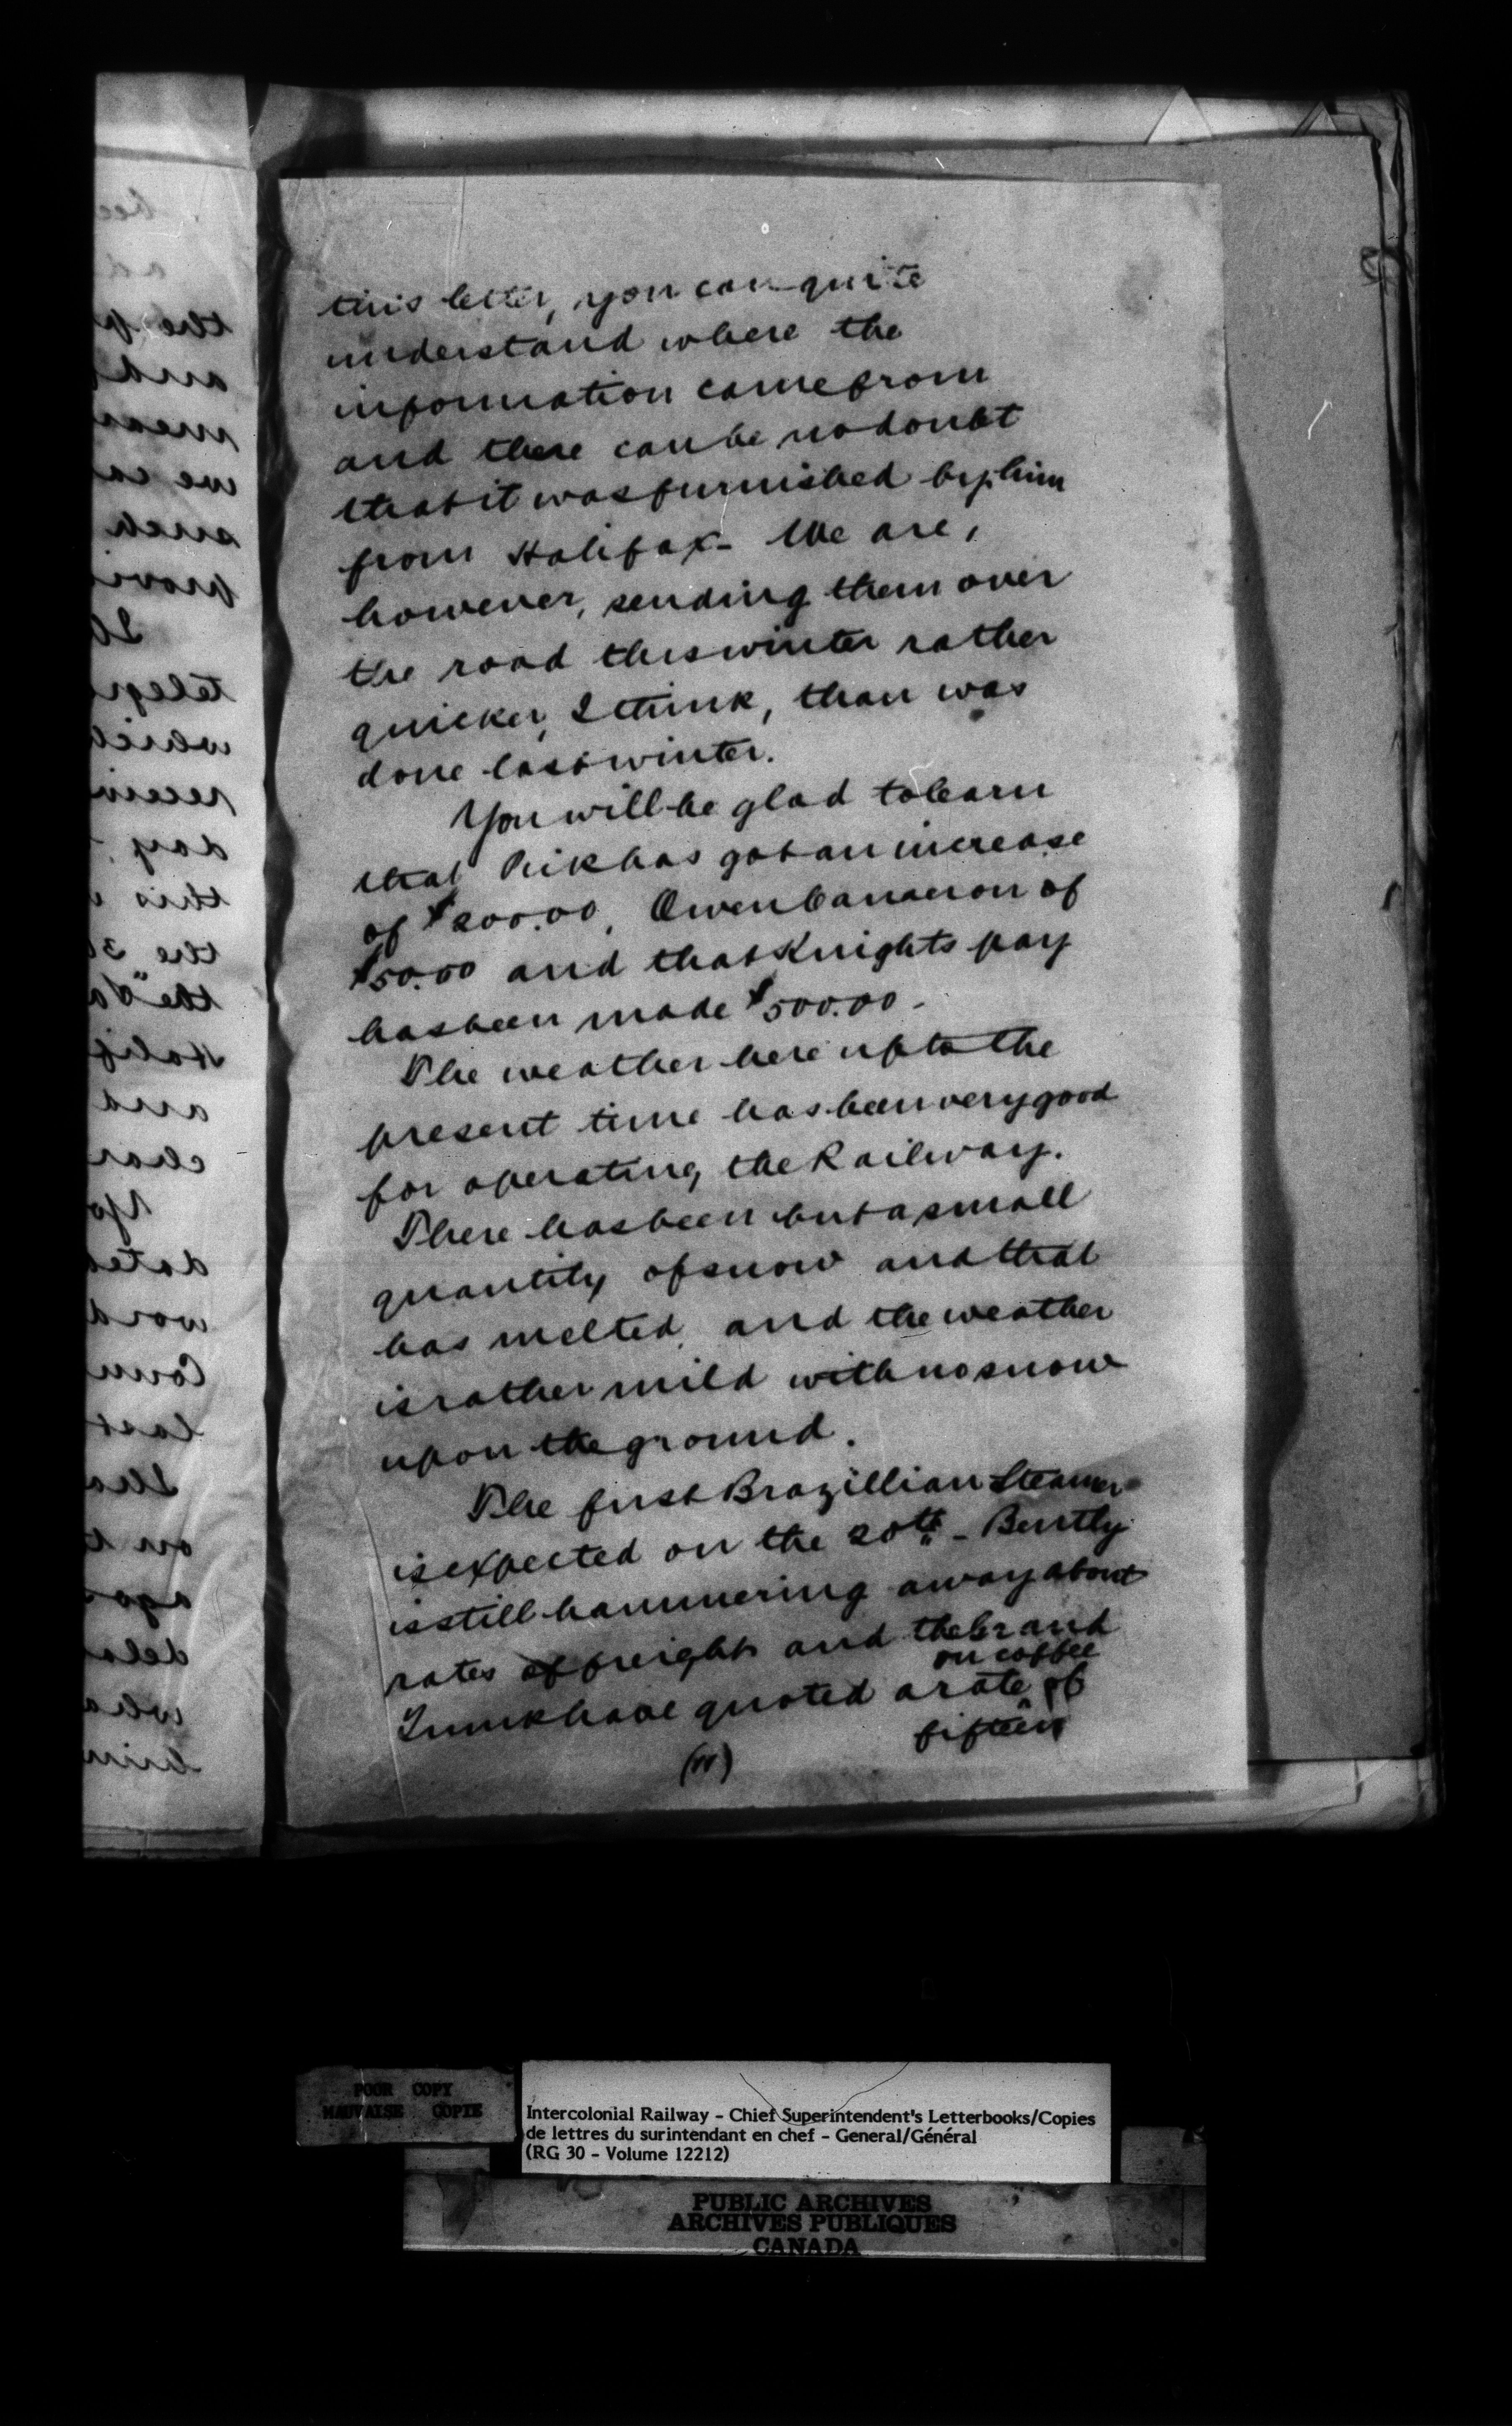 this letter, you can quite
understand where the
information came from
and there can be no doubt
that it was furnished by him
from Halifax - We are,
however, sending them over
the road this winter rather
quicker, I think, than was
done last winter.
You will be glad to learn
that has got an increase
of $200.00, Owen Cameron of
$50.00 and that Knights pay
has been made $500.00 -
The weather here up to the
present time has been very good
for operating the Railway.
There has been but a small
quantity of snow and that
has melted, and the weather
is rather mild with no snow
upon the ground.
The first Brazillian Steamer
is expected on the 20th - Bently
is still hammering away about
rates of freight and the Grand
on coffee
Trunk have quoted a rate of
fifteen
POOR COPY
MAUVAISE COPIE
Intercolonial Railway - Chief Superintendent's Letterbooks/Copies
de lettres du surintendant en chef - General/Général
(RG 30 - Volume 12212)
PUBLIC ARCHIVES
ARCHIVES PUBLIQUES
CANADA